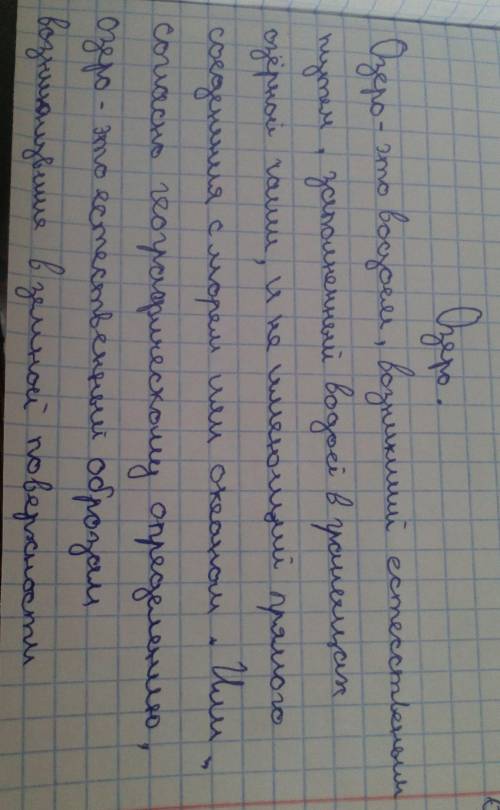 Озеро.
Озеро - это водоем, возникший естесственым
путем, заполненный водой в границах
озёрной чаши, и не имеющий прямого
соединения с морем или океаном. Или,
согласно географическому определению,
озеро - это естественный образам
возникнувшие в земной поверхности